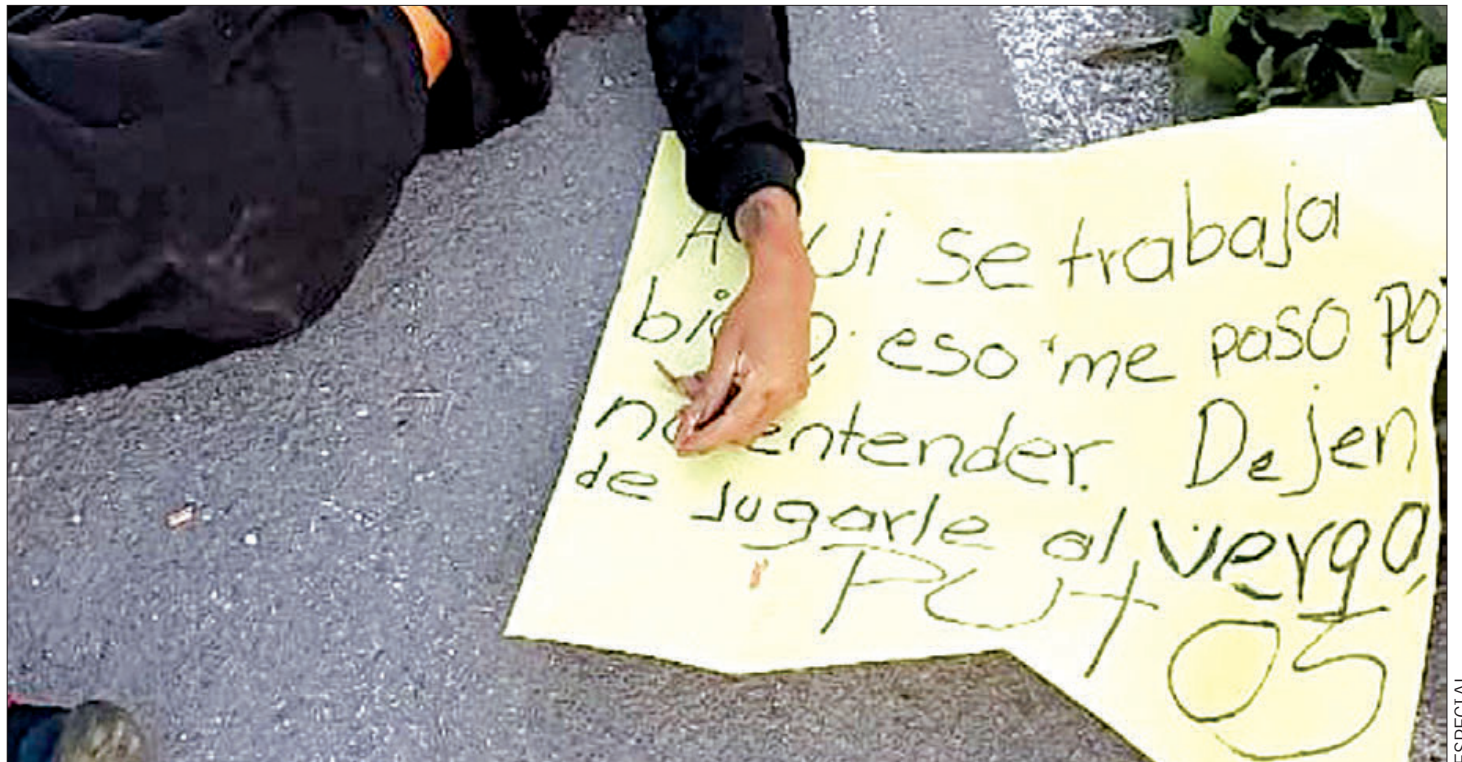 A ui se trabaja
bi eso me paso po
no entender. Dejen
de jugarle al verga,
PUTOS
ESPECIAL